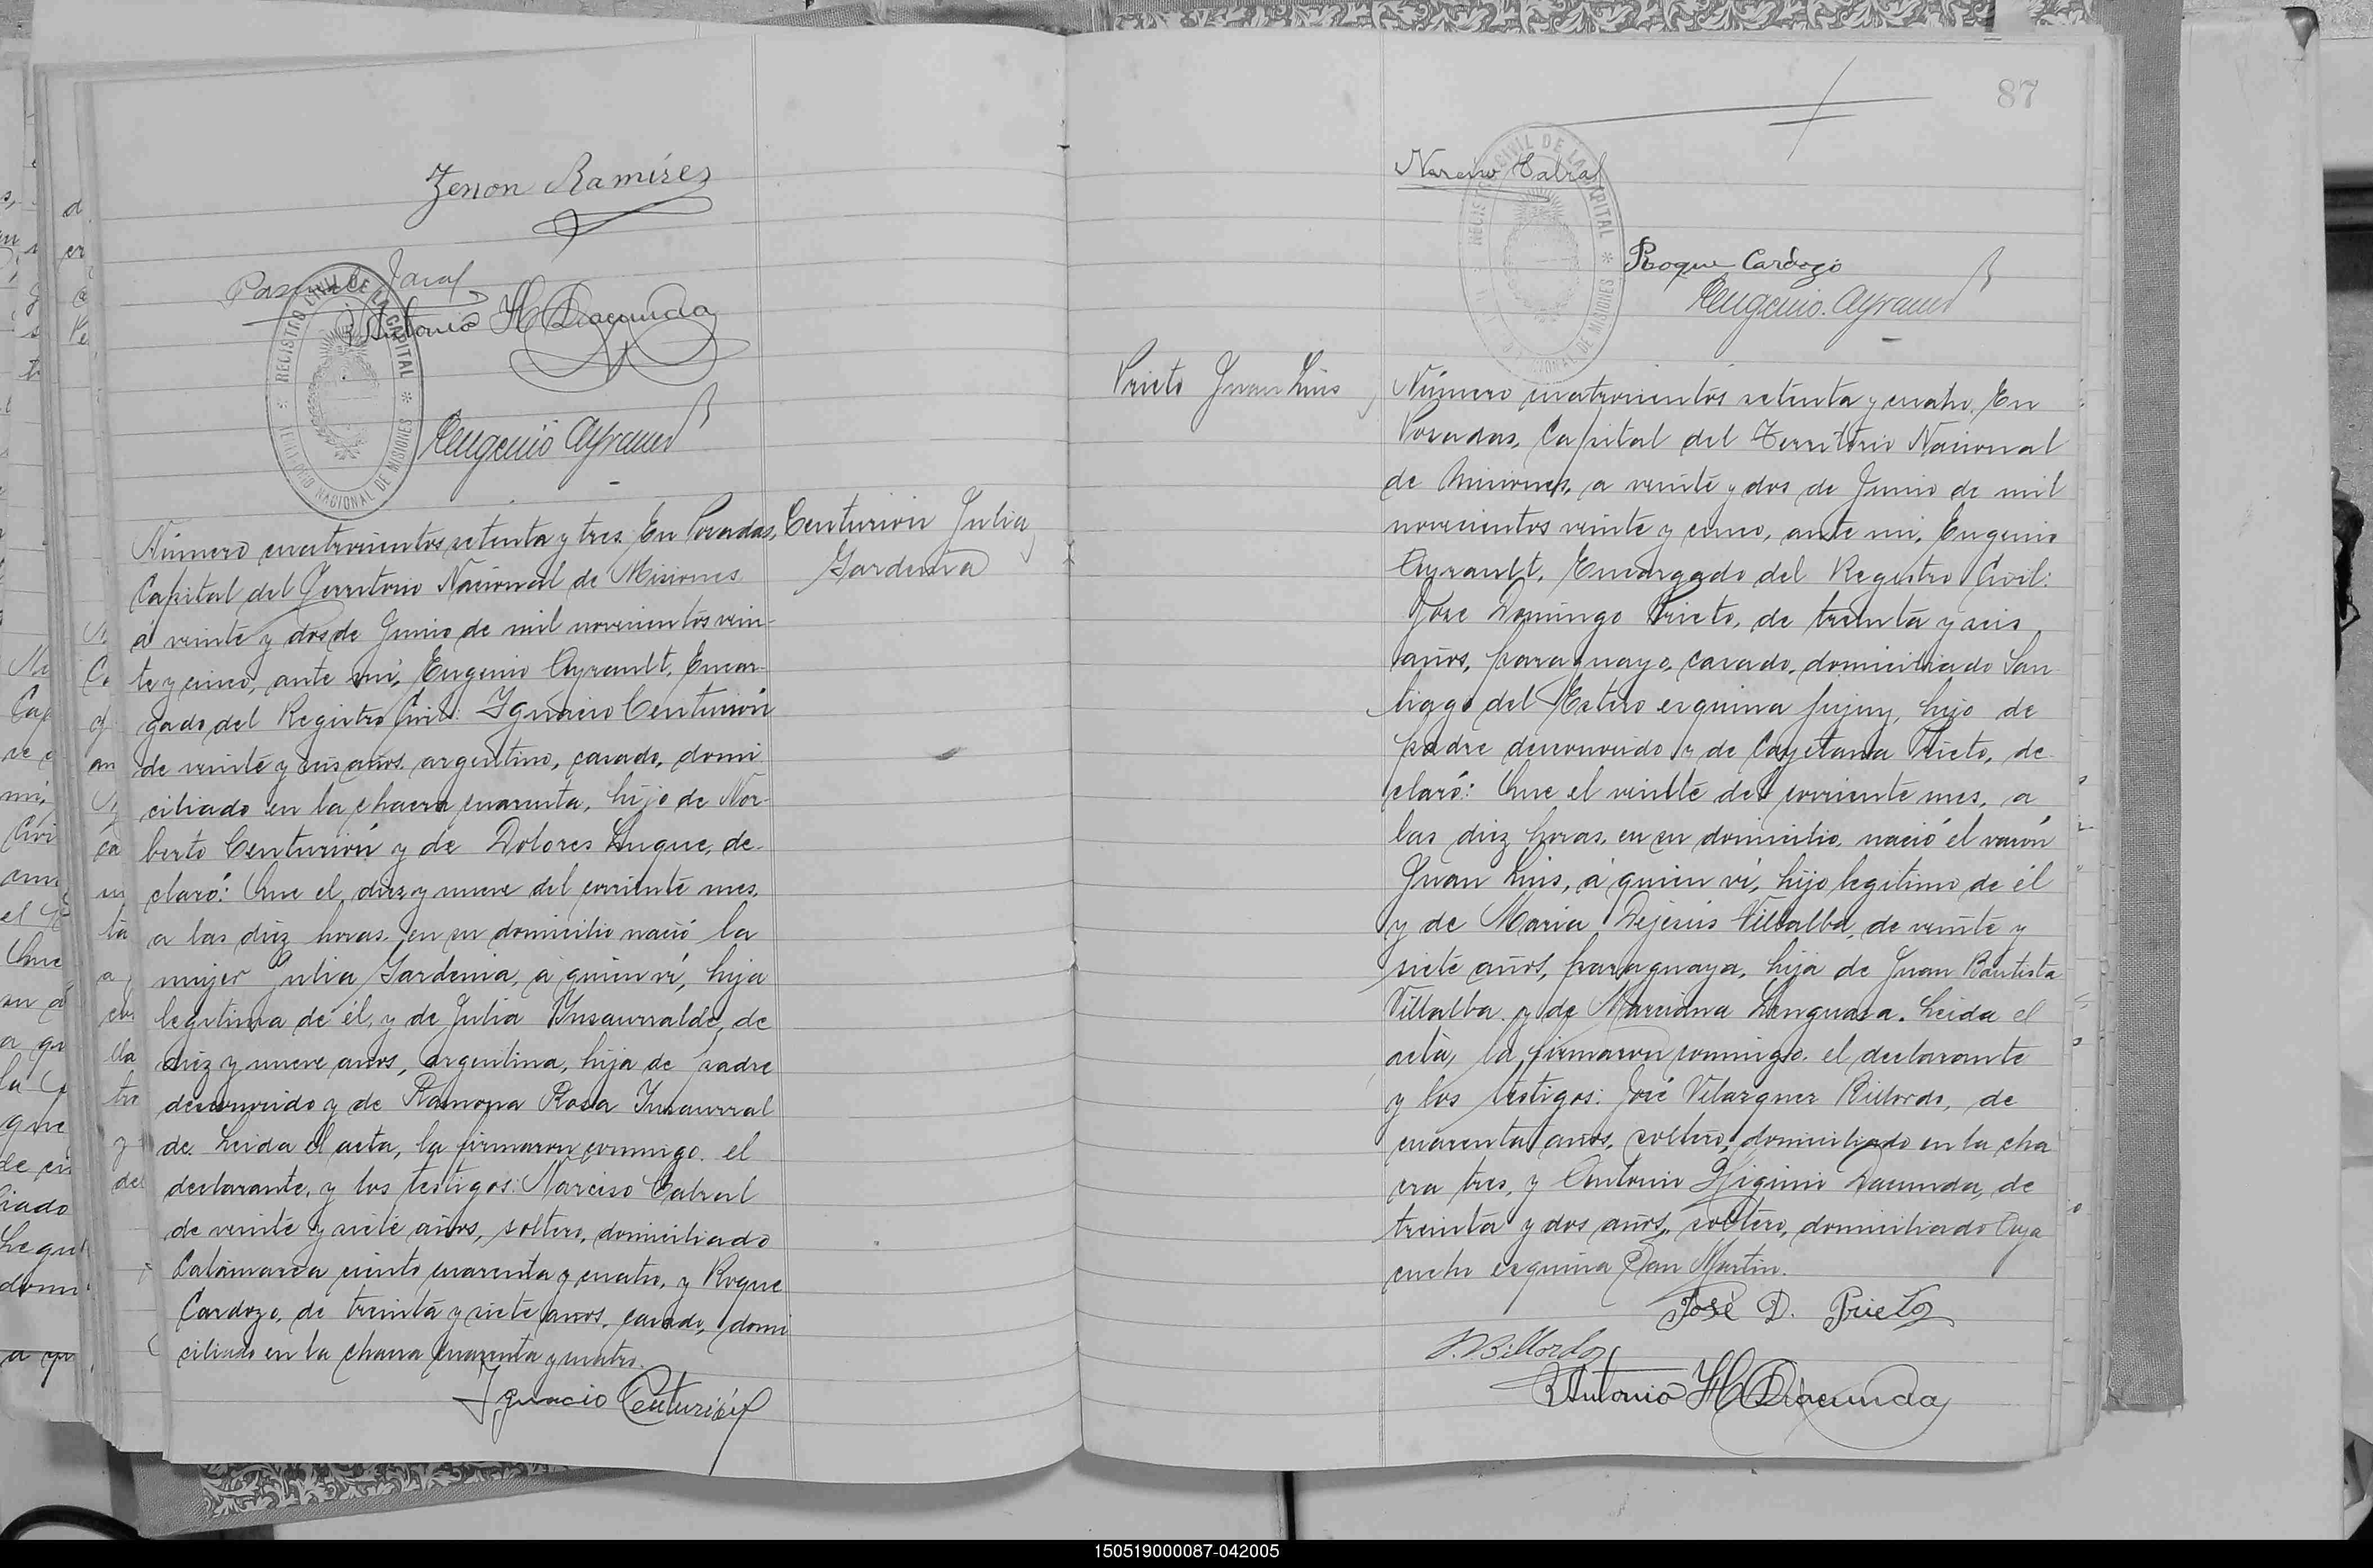 Zenon Ramírez
Pascual
Antonio H Dacunda
REGISTRO CIVIL DE LA CAPITAL
TERRITORIO NACIONAL DE MISIONES
Eugenio Ayrault
Centurión Julia
Gardenia
Número cuatrocientos setenta y tres. En Posadas,
Capital del Territorio Nacional de Misiones
á veinte y dos de Junio de mil novecientos vein-
te y cinco, ante mí, Eugenio Ayrault, Encar-
gado del Registro Civil: Ygnacio Centurión
de veinte y seis años, argentino, casado, domi
ciliado en la chacra cuarenta, hijo de Nor-
berto Centurión y de Dolores Luque, de-
claró: Que el diez y nueve del corriente mes,
a las diez horas, en su domicilio nació la
mujer Julia Gardenia, a quien ví, hija
legitima de él, y de Julia Ynsaurralde, de
diez y nueve años, argentina, hija de padre
desconocido y de Ramona Rosa Insaurral
de. Leida el acta, la firmaron conmigo, el
declarante, y los testigos: Narciso Cabral
de veinte y siete años, soltero, domiciliado
Catamarca ciento cuarenta y cuatro, y Roque
Cardozo, de treinta y siete años, casado, domi
ciliado en la chacra cuarenta y cuatro.
Ygnacio Centurión
87
Narciso Cabral
REGISTRO CIVIL DE LA CAPITAL
NACIONAL DE MISIONES
Roque Cardozo
Eugenio Ayrault
Prieto Juan Luis
Número cuatrocientos setenta y cuatro. En
Posadas, Capital del Territorio Nacional
de Misiones, a veinte y dos de Junio de mil
novecientos veinte y cinco, ante mi, Eugenio
Ayrault, Encargado del Registro Civil:
José Domingo Prieto, de treinta y seis
años, paraguayo, casado, domiciliado San
tiago del Estero esquina Jujuy, hijo de
padre desconocido y de Cayetana Prieto, de-
claró: Que el veinte del corriente mes, a
las diez horas, en su domicilio, nació el varón
Juan Luis, á quien ví, hijo legitimo de él
y de Maria Dejesús Villalba, de veinte y
siete años, paraguaya, hija de Juan Bautista
Villalba y de Marciana Lenguasa. Leida el
acta, la firmaron conmigo, el declarante
y los testigos: José Velazquez Billordo, de
cuarenta años, soltero, domiciliado en la cha
cra tres, y Antonio Higinio Dacunda, de
treinta y dos años, soltero, domiciliado Aya
cucho esquina San Martin.
José D. Prieto
Billordo
Antonio H Dacunda
150519000087-042005